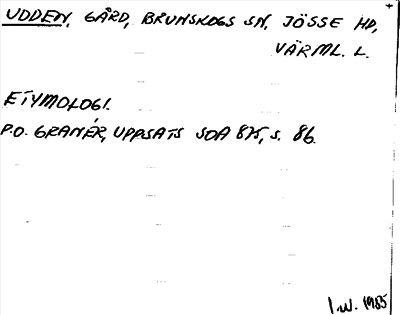 UDDEN, GÅRD, BRUNSKOGS SN, JÖSSE HD,
VÄRML. L.
ETYMOLOGI.
P.O. GRANÉR, UPPSATS SOA 875, S. 86.
I.W. 1985